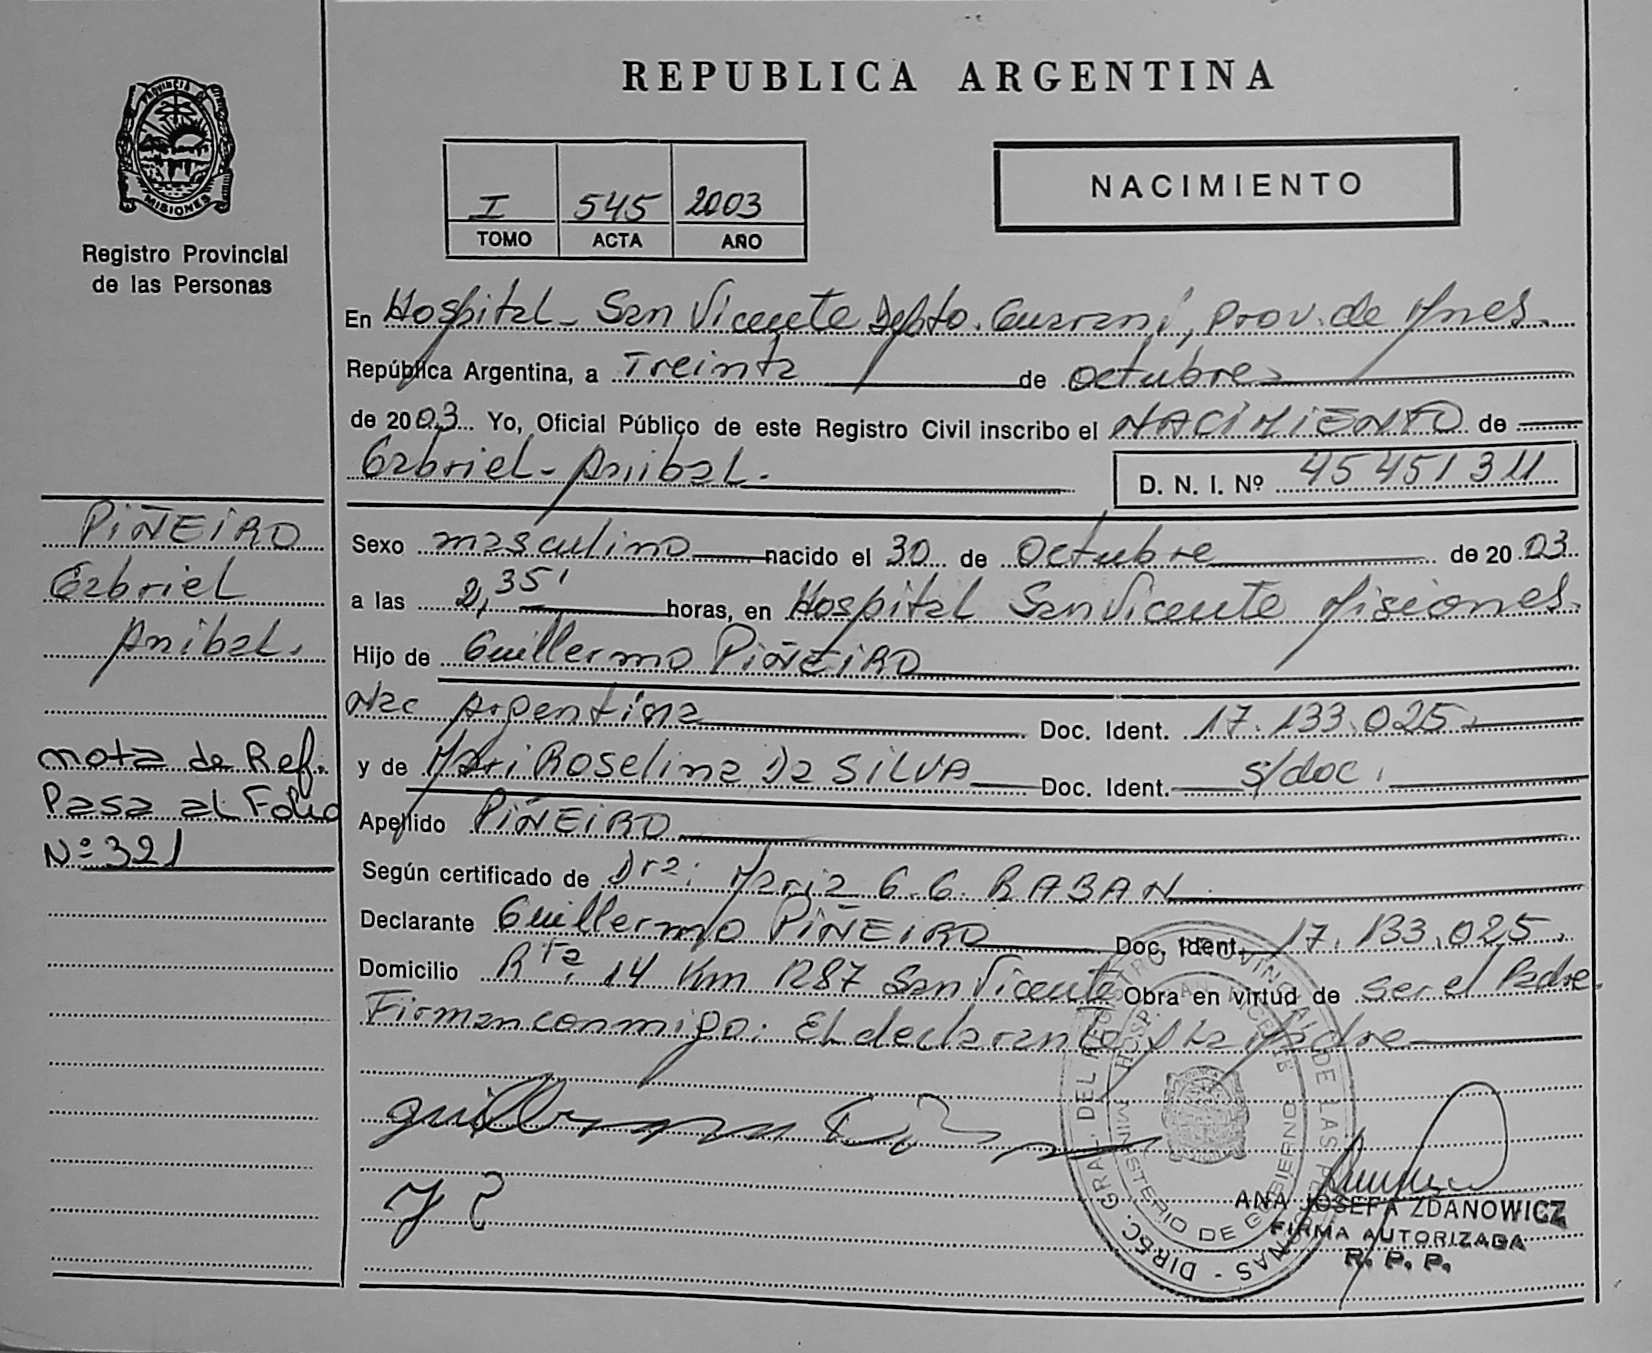 REPUBLICA ARGENTINA
PROVINCIA DE
MISIONES
Registro Provincial
de las Personas
I 545 2003
TOMO ACTA AÑO
NACIMIENTO
En Hospital - San Vicente Depto. Guaraní, Prov. de Mnes.
República Argentina, a Treinta de octubre
de 2003 Yo, Oficial Público de este Registro Civil inscribo el NACIMIENTO de
Gabriel - Anibal.
D. N. I. Nº 45451311
PIÑEIRO
Gabriel
Anibal.
Sexo masculino nacido el 30 de Octubre de 2003
a las 2,35' horas, en Hospital San Vicente Misiones.
Hijo de Guillermo PIÑEIRO
Nac Argentina Doc. Ident. 17.133.025
y de Mari Roselina Da SILVA Doc. Ident. s/doc.
nota de Ref.
Pasa al Folio
Nº 321
Apellido PIÑEIRO
Según certificado de Dra: Maria G. G. RABAN
Declarante Guillermo PIÑEIRO Doc. Ident. 17.133.025.
Domicilio Rta. 14 Km 1287 San Vicente Obra en virtud de ser el Padre.
Firman conmigo: El declarante y La Madre
DIREC. GRAL. DEL REGISTRO PROVINCIAL DE LAS PERSONAS -
HOSP. SAN VICENTE
MINISTERIO DE GOBIERNO
ANA JOSEFA ZDANOWICZ
FIRMA AUTORIZADA
R. P. P.